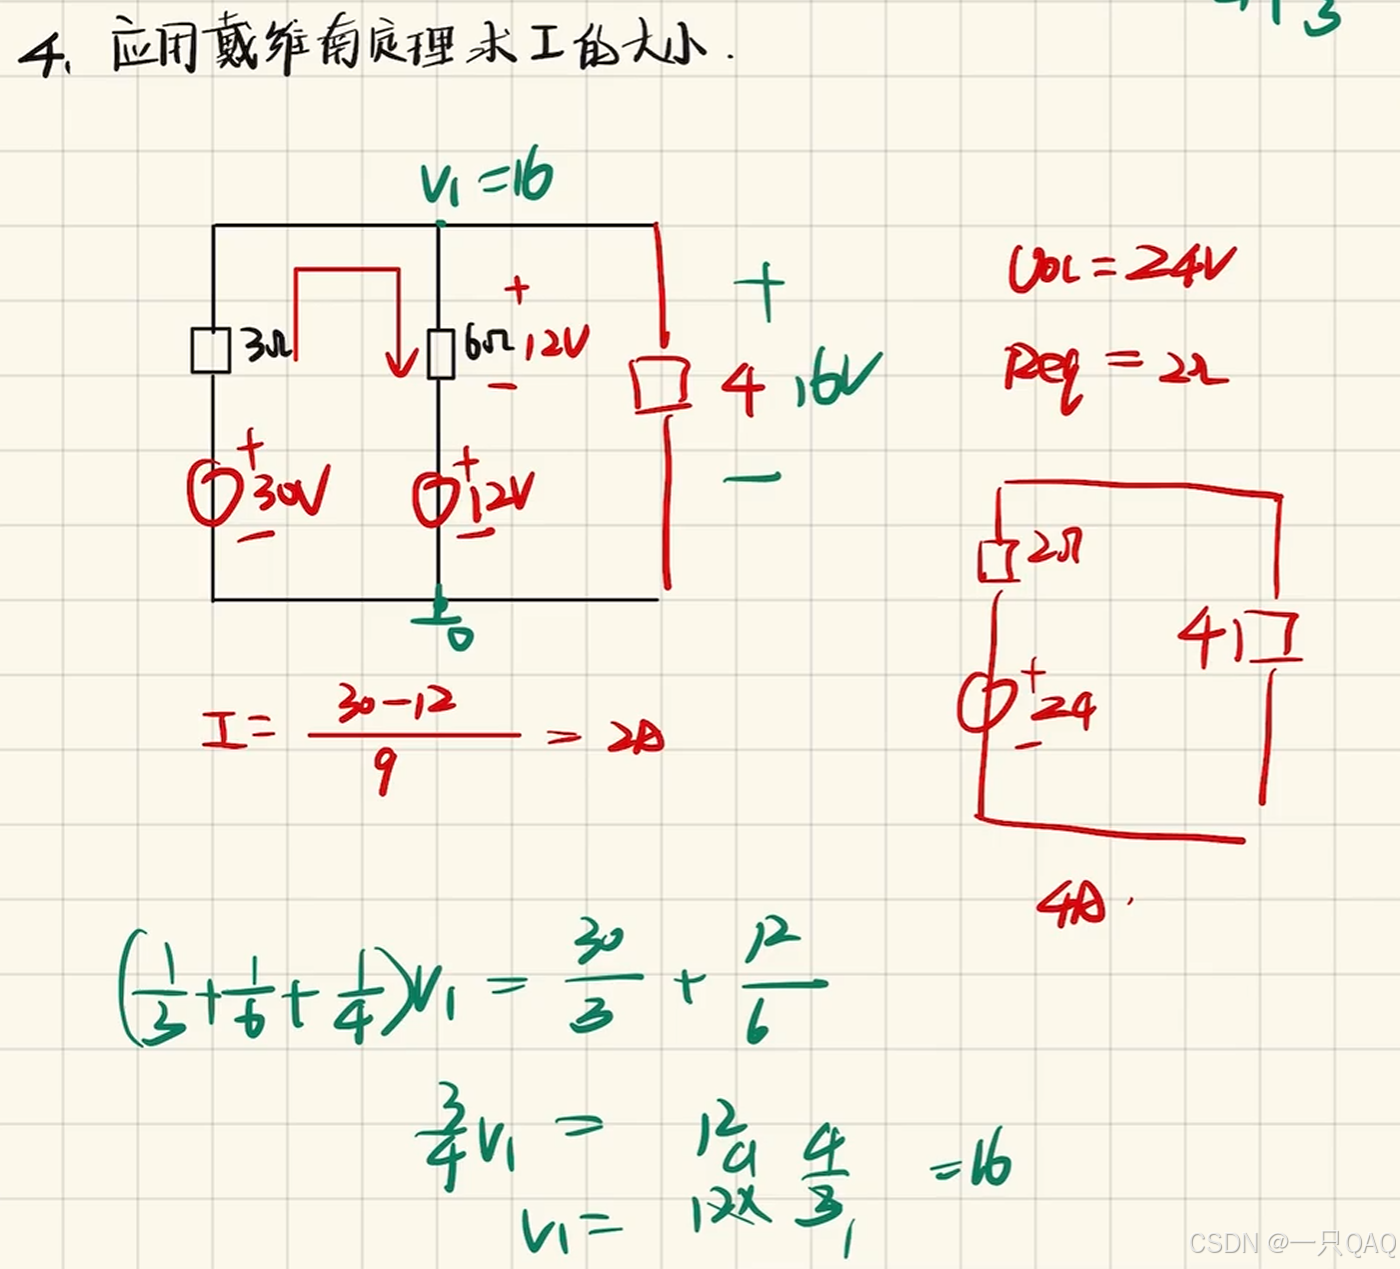 4. 应用戴维南定理求I的大小.
3
V1 =16
3Ω
6Ω
+
12V
−
+
30V
−
+
12V
−
+
4
16V
−
0
Uoc = 24V
Req = 2Ω
2Ω
+
24
−
4
4A
I = 30-12 / 9 = 2A
(1/3 + 1/6 + 1/4)V1 = 30/3 + 12/6
3/4 V1 = 12
V1 = 12× 4/3 =16
CSDN @一只QAQ